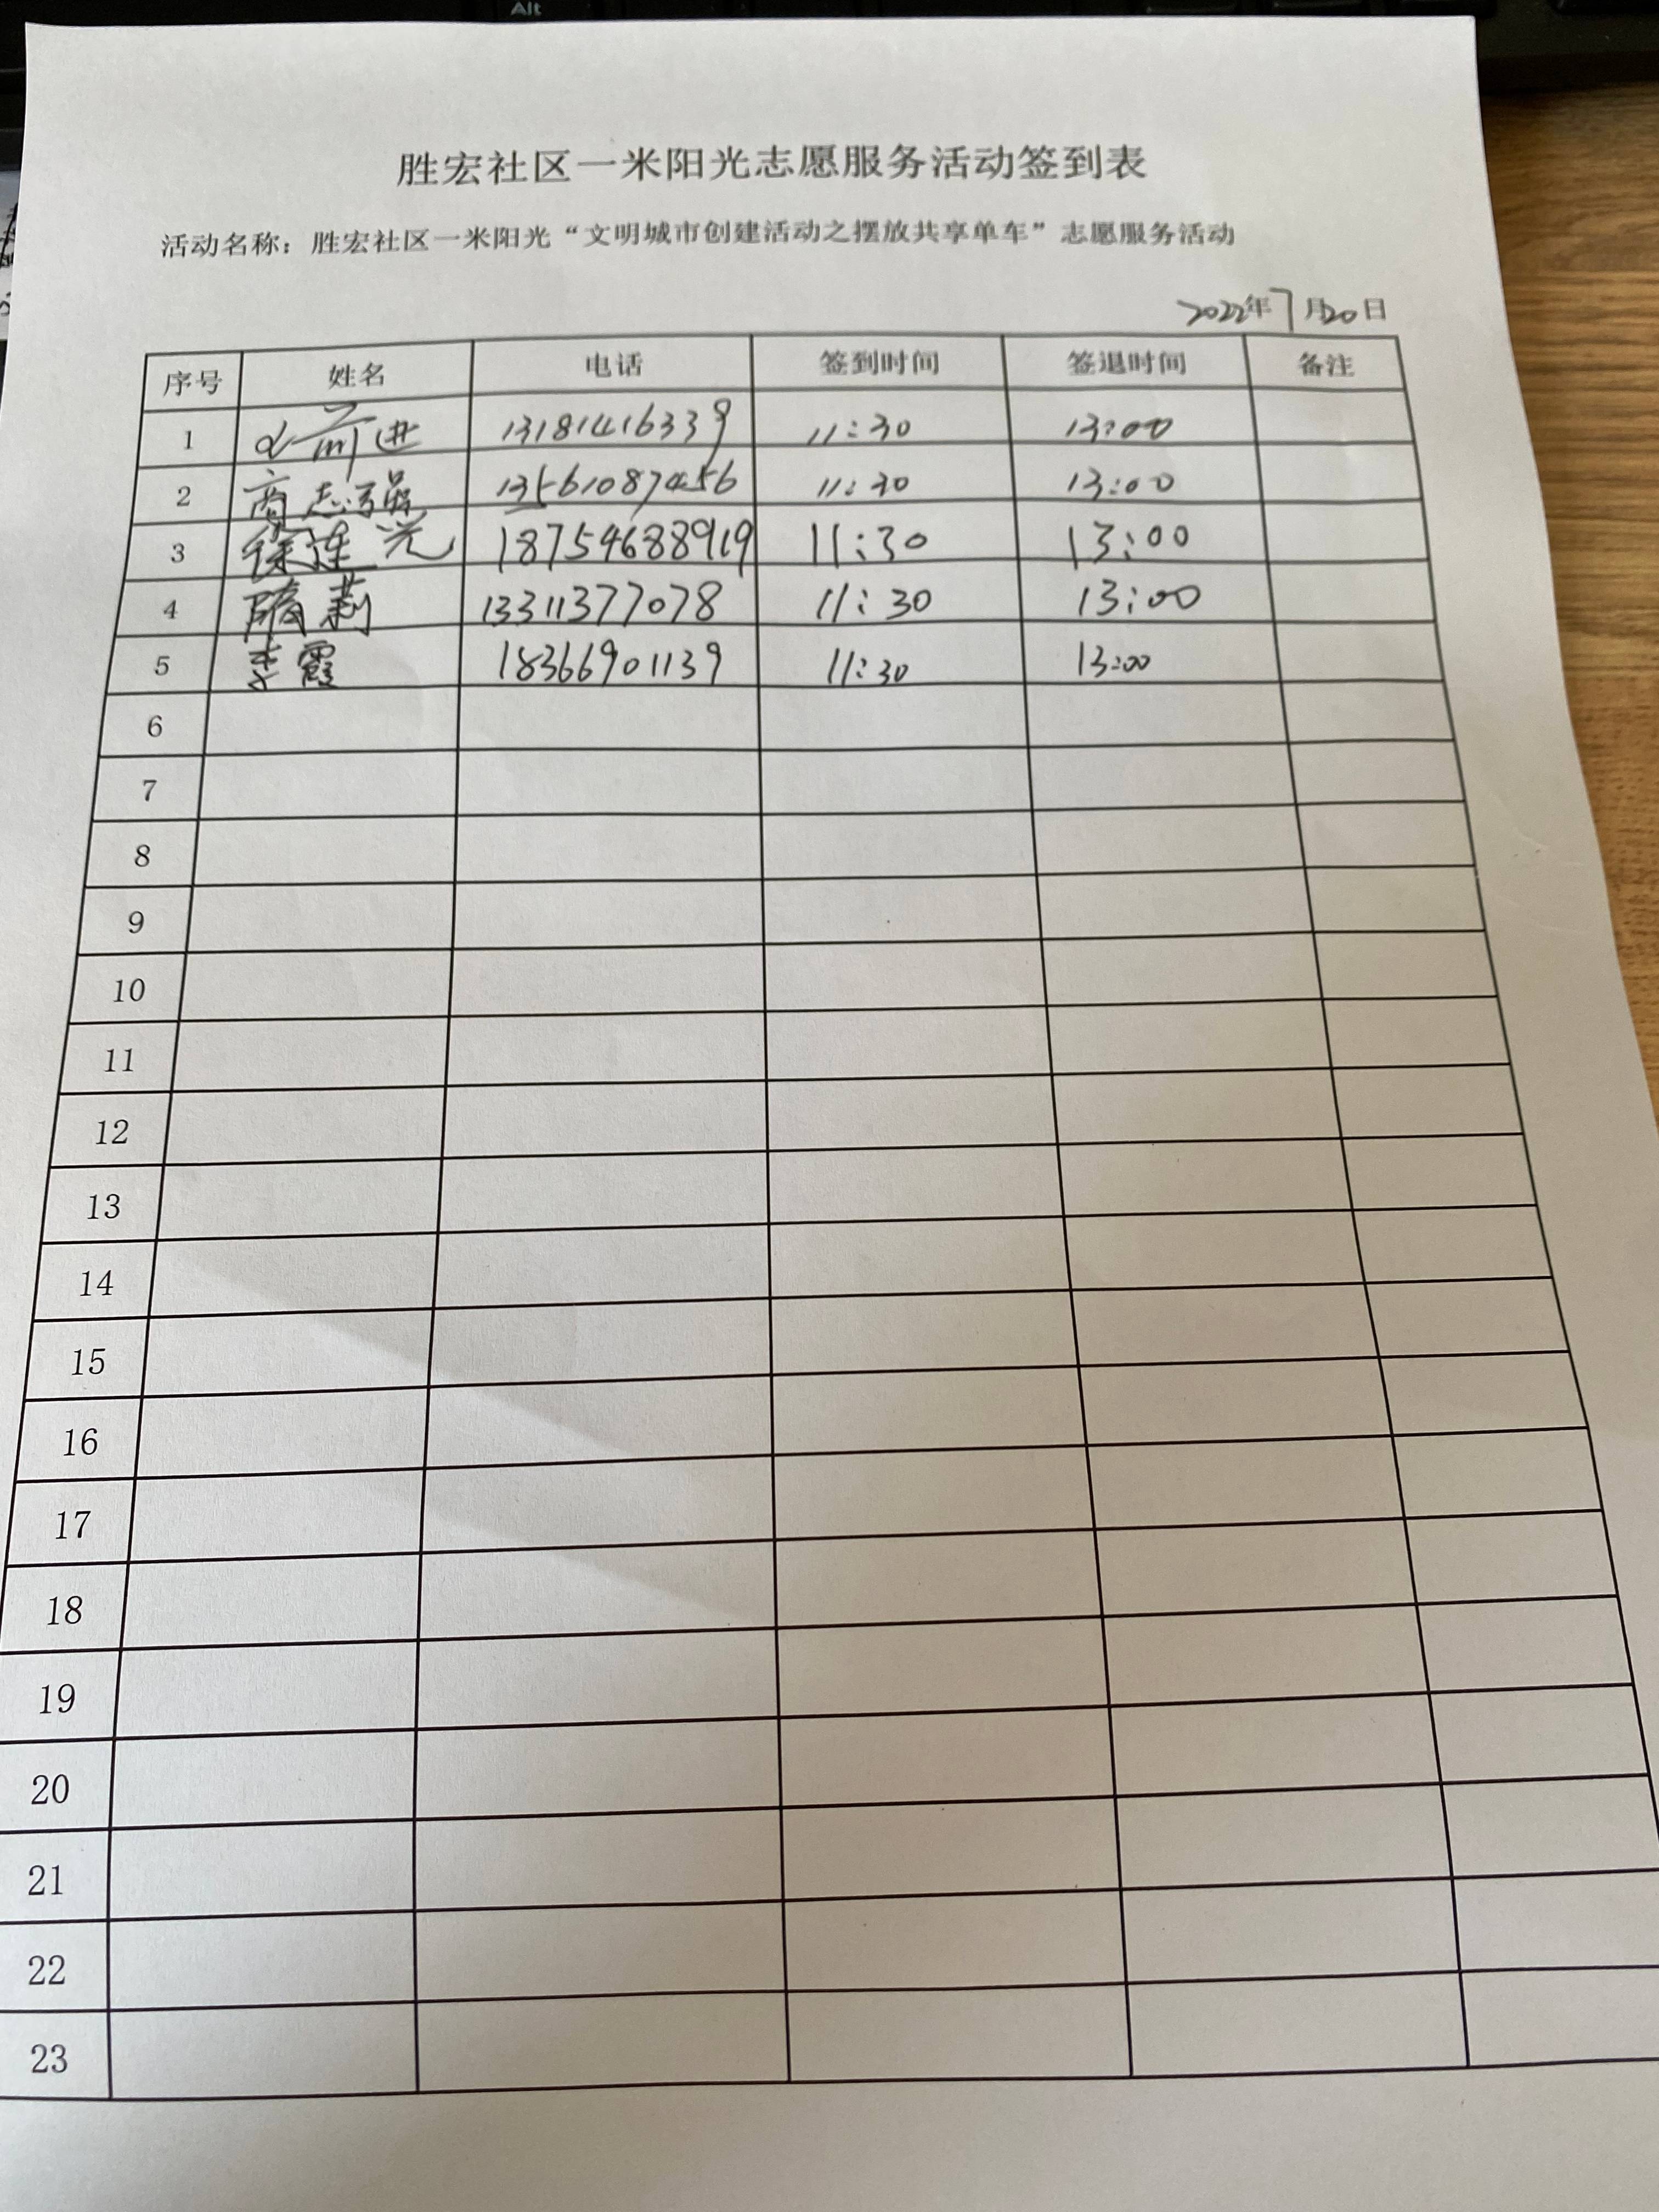 Alt
胜宏社区一米阳光志愿服务活动签到表
活动名称：胜宏社区一米阳光“文明城市创建活动之摆放共享单车”志愿服务活动
2022年7月20日
序号 姓名 电话 签到时间 签退时间 备注
1 13181416339 11:30 13:00
2 商志强 13561087456 11:30 13:00
3 徐连光 18754688919 11:30 13:00
4 隋莉 13311377078 11:30 13:00
5 李霞 18366901139 11:30 13:00
6
7
8
9
10
11
12
13
14
15
16
17
18
19
20
21
22
23